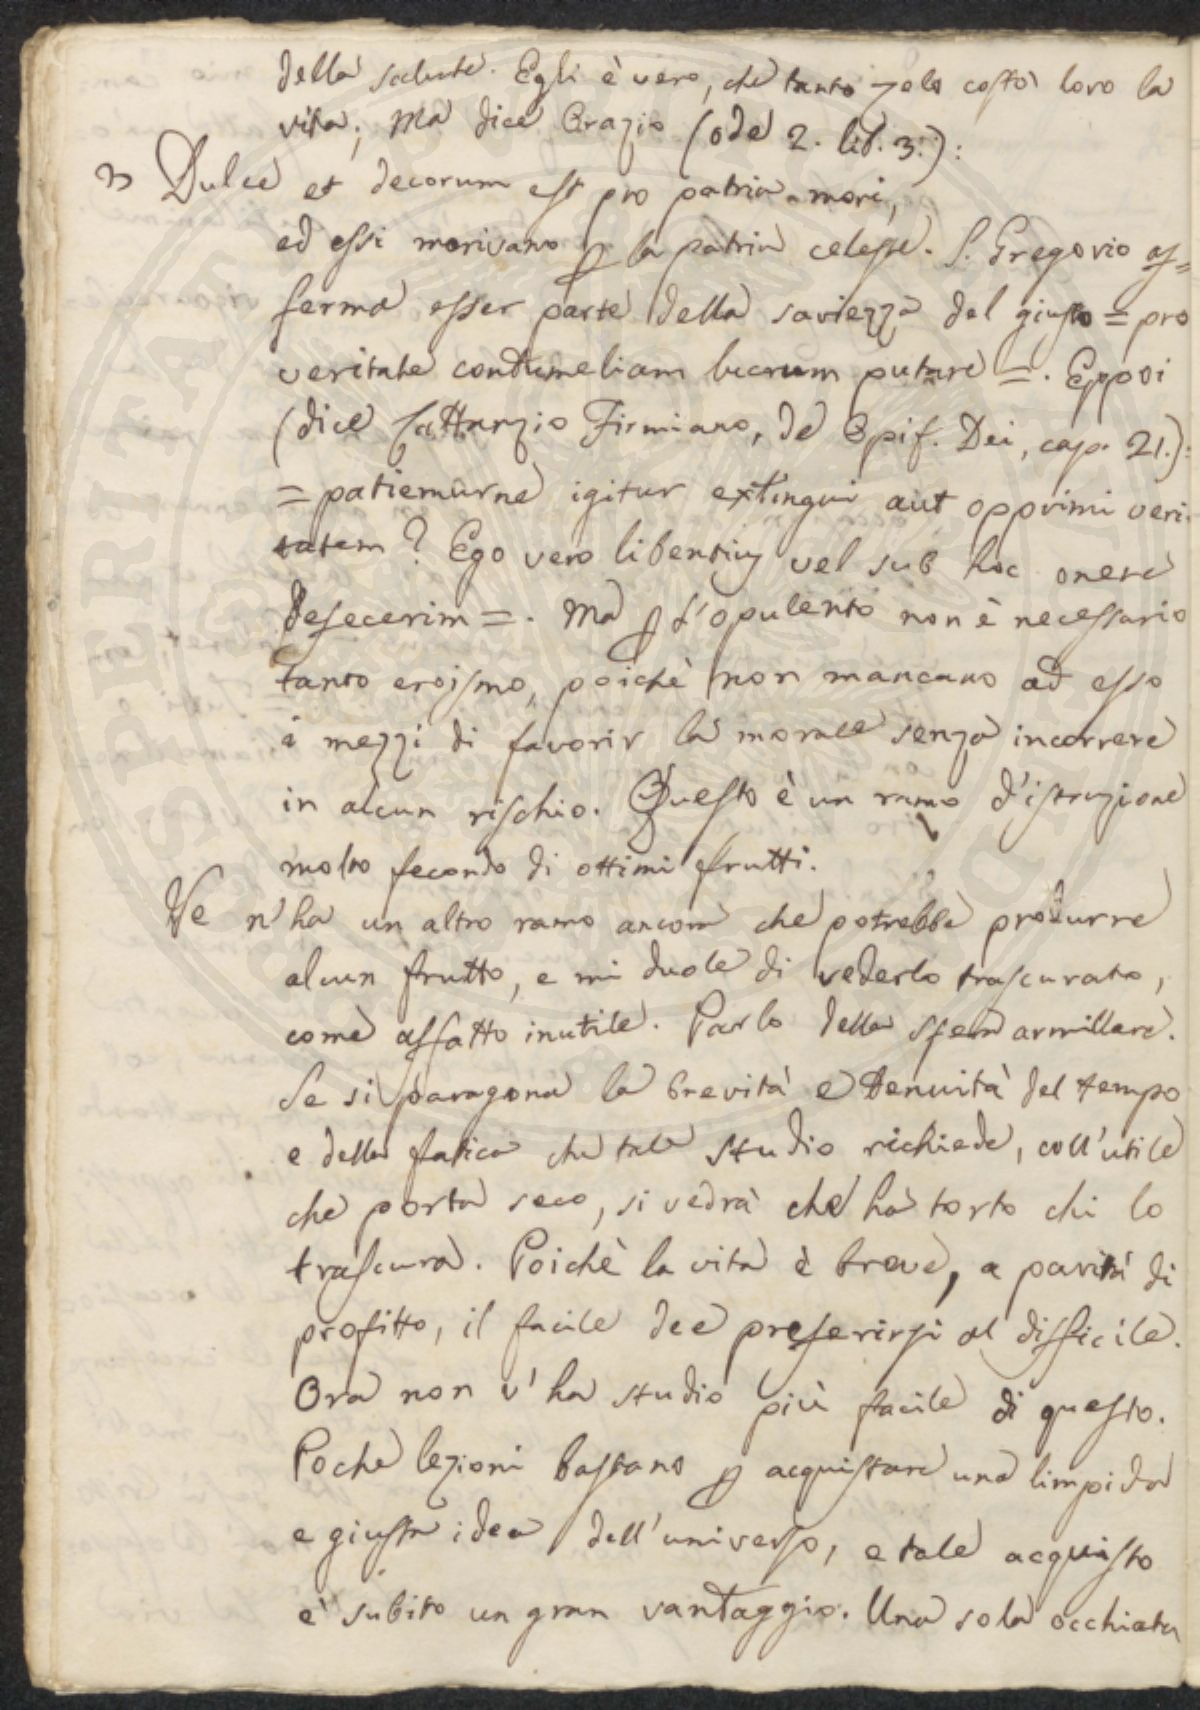 della salute. Egli è vero, che tanto zelo costò loro la
vita; Ma dice Orazio (ode 2. lib. 3.):
Dulce et decorum est pro patria mori,
ed essi morivano p la patria celeste. S. Gregorio af=
ferma esser parte della saviezza del giusto = pro
veritate contumeliam lucrum putare =. Eppoi
(dice Lattanzio Firmiano, de Opif. Dei, cap. 21.):
= patiemurne igitur extingui aut opprimi veri-
tatem? Ego vero libentius vel sub hoc onere
defecerim =. Ma p l'opulento non è necessario
tanto eroismo, poichè non mancano ad esso
i mezzi di favorir la morale senza incorrere
in alcun rischio. Questo è un ramo d'istruzione
molto fecondo di ottimi frutti.
Ve n'ha un altro ramo ancora che potrebbe produrre
alcun frutto, e mi duole di vederlo trascurato,
come affatto inutile. Parlo della sfera armillare.
Se si paragona la brevità e tenuità del tempo
e della fatica che tale studio richiede, coll'utile
che porta seco, si vedrà che ha torto chi lo
trascura. Poichè la vita è breve, a parità di
profitto, il facile dee preferirsi al difficile.
Ora non v'ha studio più facile di questo.
Poche lezioni bastano p acquistare una limpida
e giusta idea dell'universo, e tale acquisto
è subito un gran vantaggio. Una sola occhiata